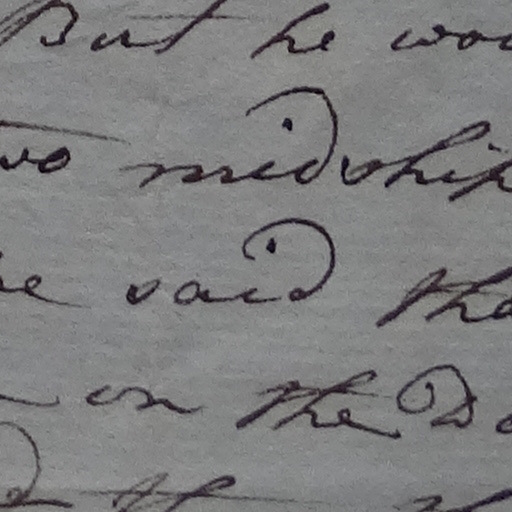 But he wou
two midship
he said tha
on the D